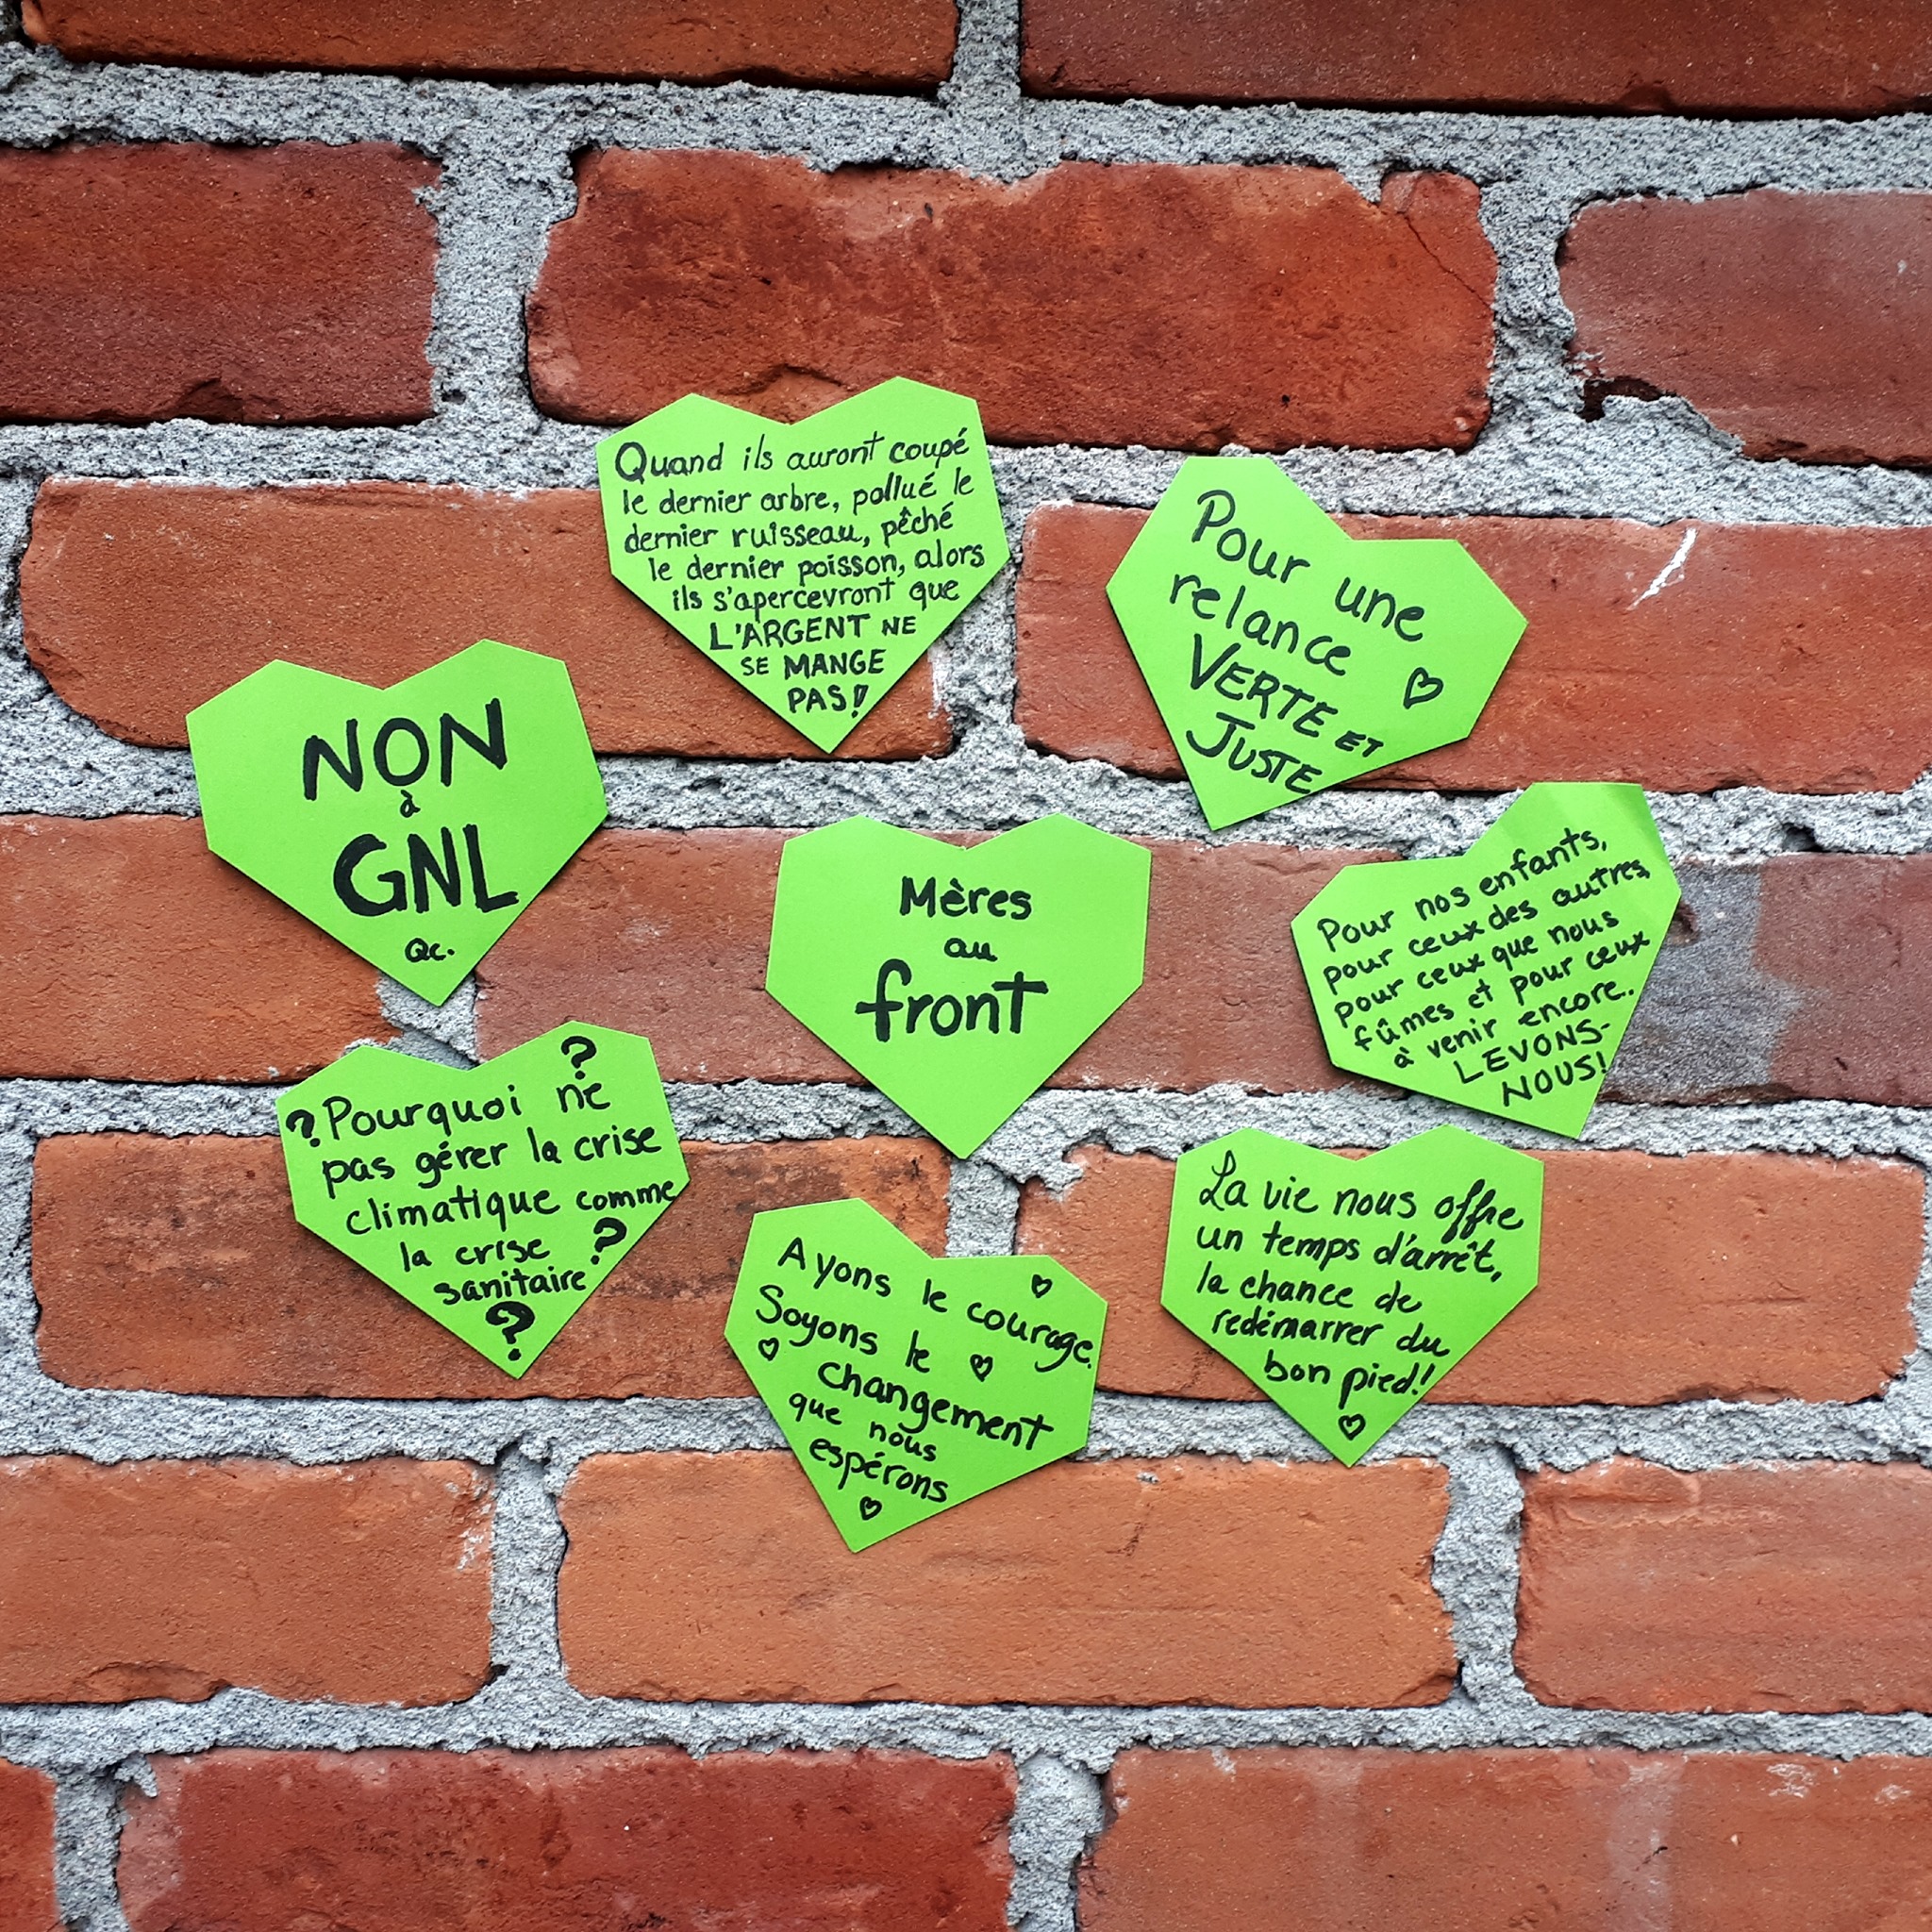 Quand ils auront coupé
le dernier arbre, pollué le
dernier ruisseau, pêché
le dernier poisson, alors
ils s'apercevront que
L'ARGENT NE
SE MANGE
PAS!
Pour une
relance
VERTE ET
JUSTE
NON
à
GNL
Qc.
Mères
au
front
Pour nos enfants,
pour ceux des autres,
pour ceux que nous
fûmes et pour ceux
à venir encore.
LEVONS-
NOUS!
?
? Pourquoi ne
pas gérer la crise
climatique comme
la crise ?
sanitaire
?
Ayons le courage.
Soyons le
changement
que nous
espérons
La vie nous offre
un temps d'arrêt,
la chance de
redémarrer du
bon pied!